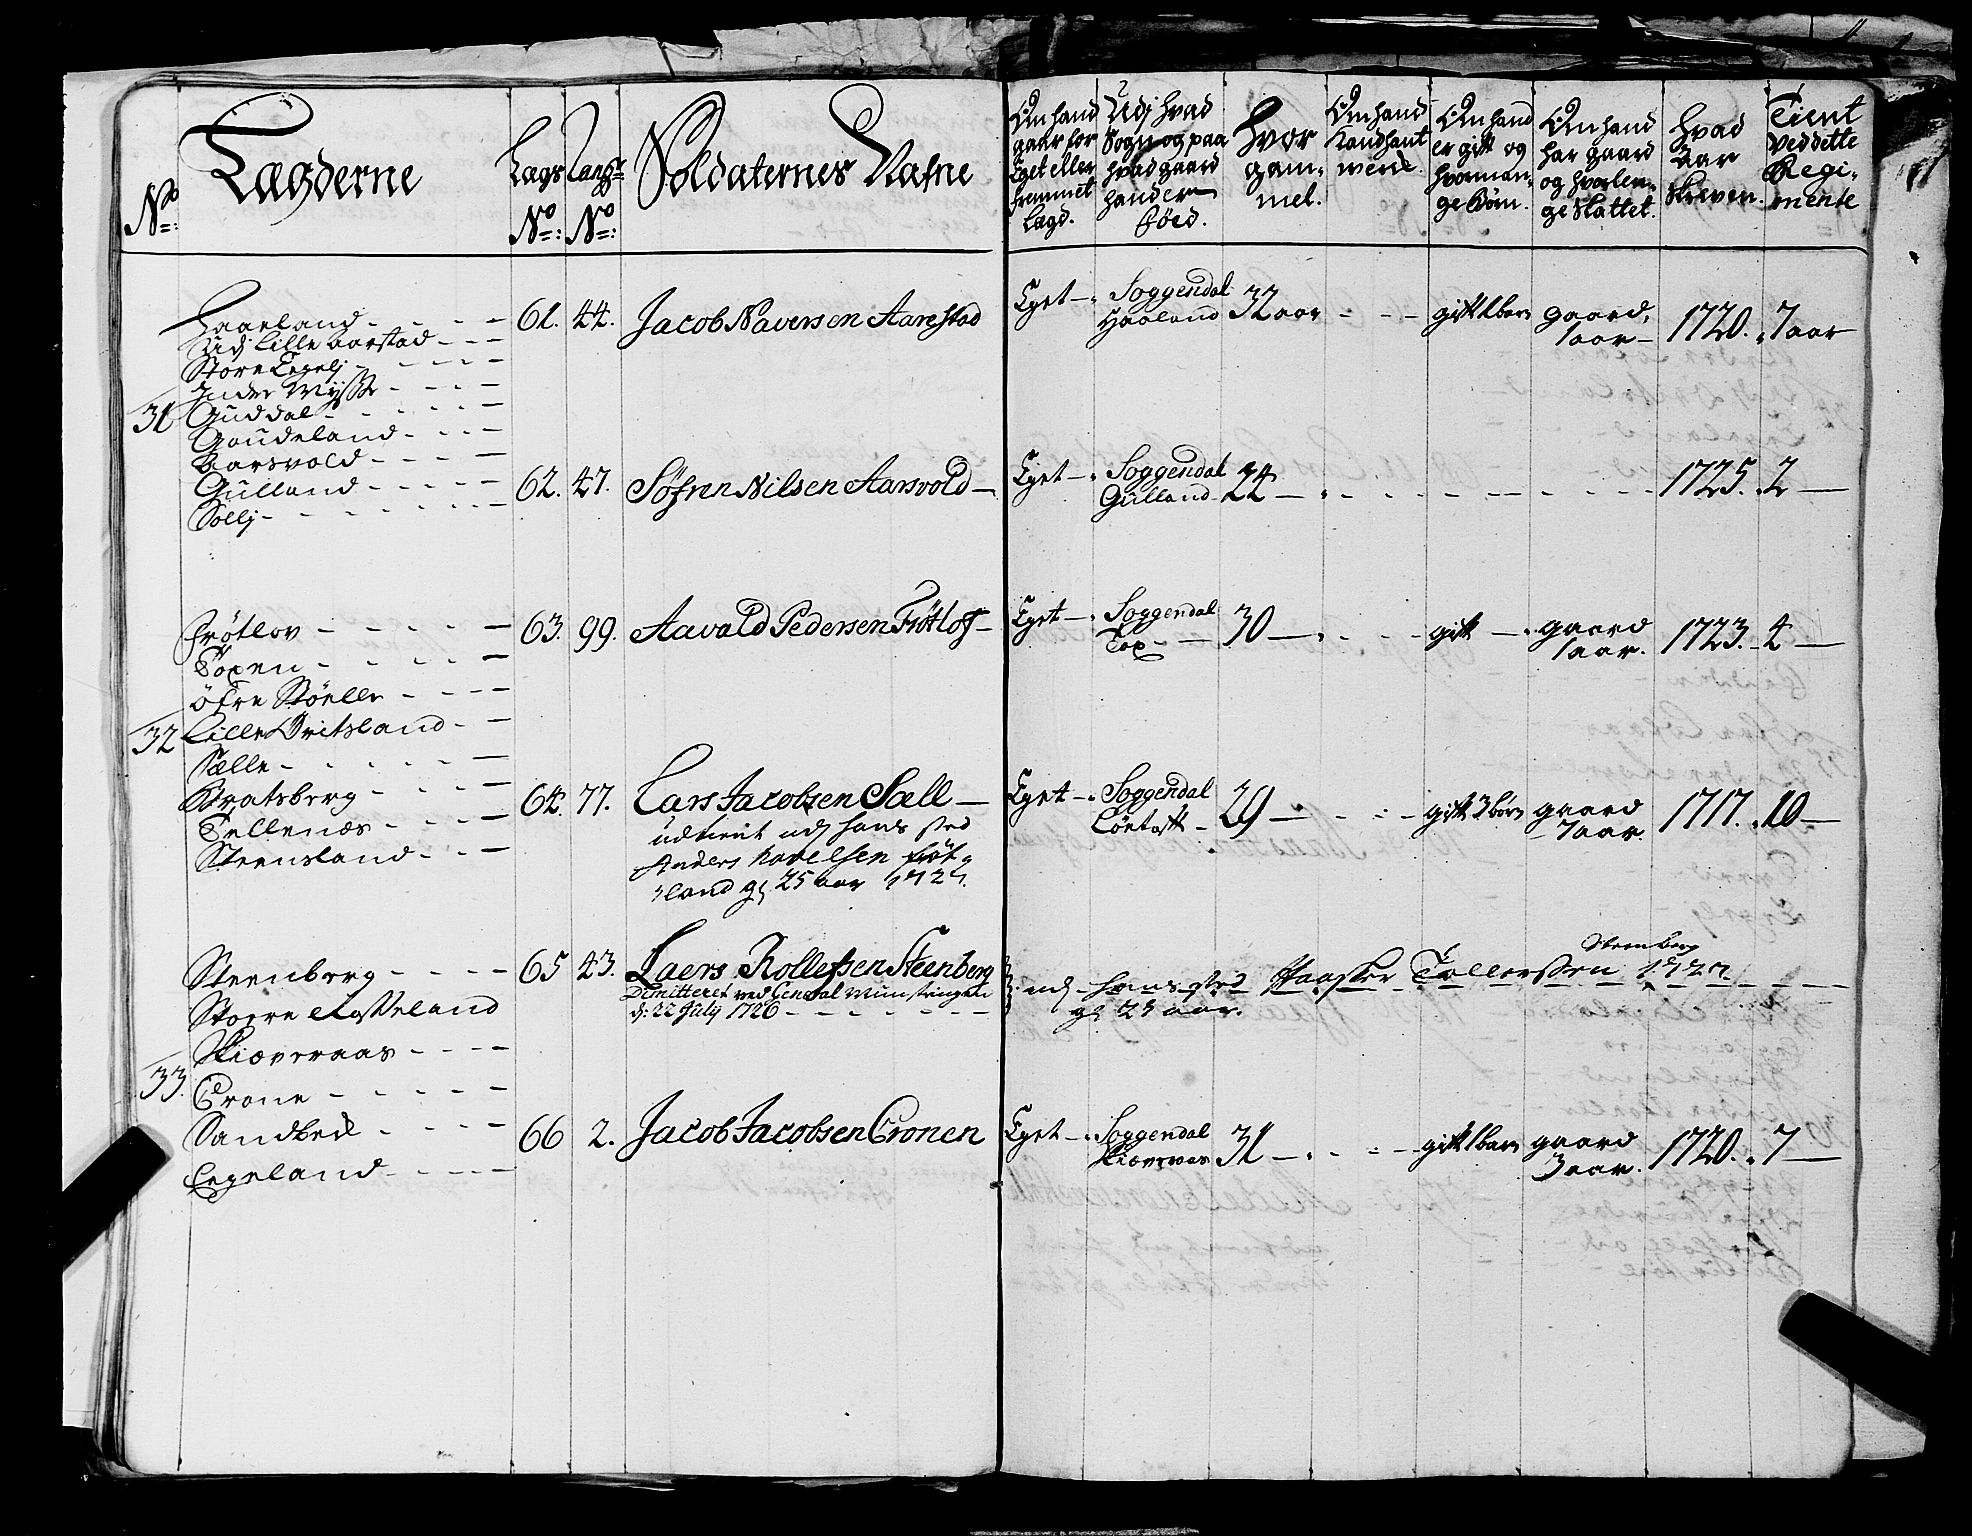 No
Lægderne
Lægs No
Rang No
Soldaternes Nafne
Om hand gaar for Eget eller fremmet Lægd.
Udj hvad Sogn og paa hvad gaard hand er föed.
Hvor gam-mel.
Om hand
Om hand er gift og hvor man-ge Börn.
Om hand har gaard og hvor len-ge hattet.
Hvad Aar skreven.
Tient ved dette Regi-mente
31
Haaeland
Udj Lille Aarstad
Store Eegelj
Guddal
Gaudeland
Aarsvold
Gulland
Sollj
61. 44. Jacob Naversen Aarestad
Eget Soggendal Haaland 32 aar gift 1 barn gaard, 1 aar 1720. 7 aar
62. 47. Söfren Nilsen Aarsvold
Eget Soggendal Gulland 22 1725. 2
32
Frötlov
Toxen
Öfre Stöelle
Lille Dritsland
Sælle
Bratsberg
Tellenæs
Steensland
63. 99. Aavold Pedersen Fröttlof
Eget Soggendal Tox 30 gift gaard 1 aar. 1723. 4
64. 77. Lars Jacobsen Sæll
udtient udj hans sted
Anders
land gl 25 aar 1727.
Eget Soggendal 29 gift 3 börn gaard 7 aar. 1717. 10
33.
Steenberg
Stoere
Skiæveraas
Crone
Sandbek
Eegeland
65 43. Laers Rollefsen Steenberg
Dimitteret ved General Munstringen
d: 22 July 1726
udj hans sted Haaster Tollerssen Steenberg 1727
gl 25 aar.
66 2. Jacob Jacobsen Cronen
Eget Soggendal Skiæveras 31 gift 1 barn gaard 3 aar. 1720. 7